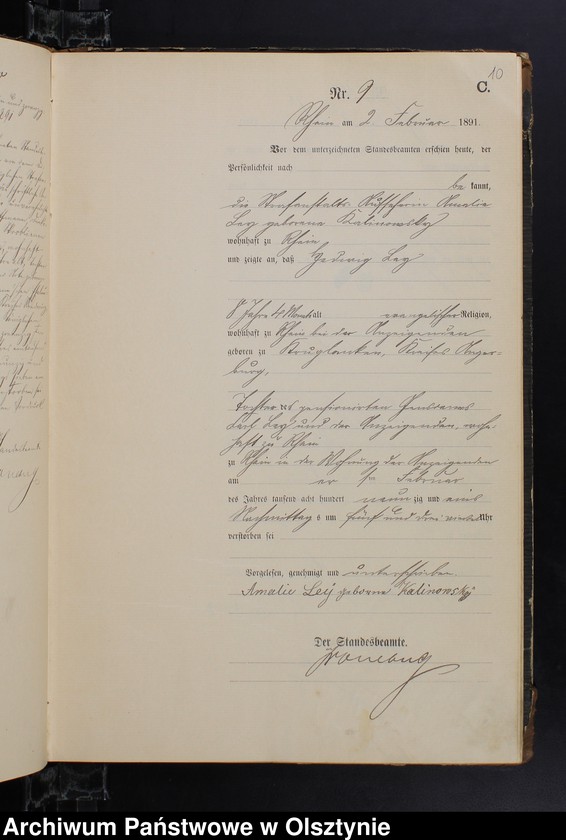 10
C.
Nr. 9
Rhein am 2 Februar 1891.
Vor dem unterzeichneten Standesbeamten erschien heute, der
Persönlichkeit nach
be kannt,
die Strafanstalts Aufseherin Amalie
Ley geborene Kalinowsky
wohnhaft zu Rhein
und zeigte an, daß Hedwig Ley
8 Jahre 4 Monate alt evangelischer Religion,
wohnhaft zu Rhein bei der Anzeigenden
geboren zu Kruglanken, Kreises Anger-
burg,
Tochter des pensionirten Gendarms
Ley und der Anzeigenden, wohn-
haft zu Rhein
zu Rhein in der Wohnung der Anzeigenden
am er sten Februar
des Jahres tausend acht hundert neun zig und eins
Nachmittag s um fünf und drei viertel Uhr
verstorben sei
Vorgelesen, genehmigt und unterschrieben
Amalie Ley geborne Kalinowsky
Der Standesbeamte.
Archiwum Państwowe w Olsztynie